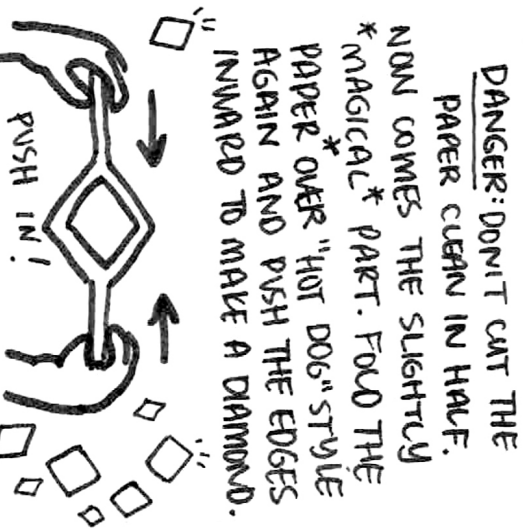 DANGER: DON'T CUT THE
PAPER CLEAN IN HALF.
NOW COMES THE SLIGHTLY
*MAGICAL* PART. FOLD THE
PAPER OVER "HOT DOG" STYLE
*
AGAIN AND PUSH THE EDGES
INWARD TO MAKE A DIAMOND.
PUSH IN!